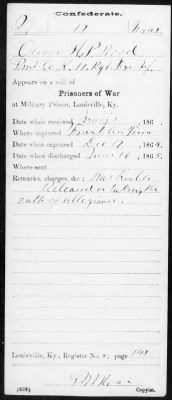 Confederate.
17
Oliver H. P. Wood
Appears on a roll of
Prisoners of War
at Military Prison, Louisville, Ky.
Date when received 186 .
Where captured Franklin Tenn
Date when captured Dec 17, 1864.
Date when discharged June 16, 1865.
Where sent
Remarks, charges, &c: Nashville
Released on taking the
oath of allegiance.
Louisville, Ky., Register No. 8; page 148
(639)
Copyist.